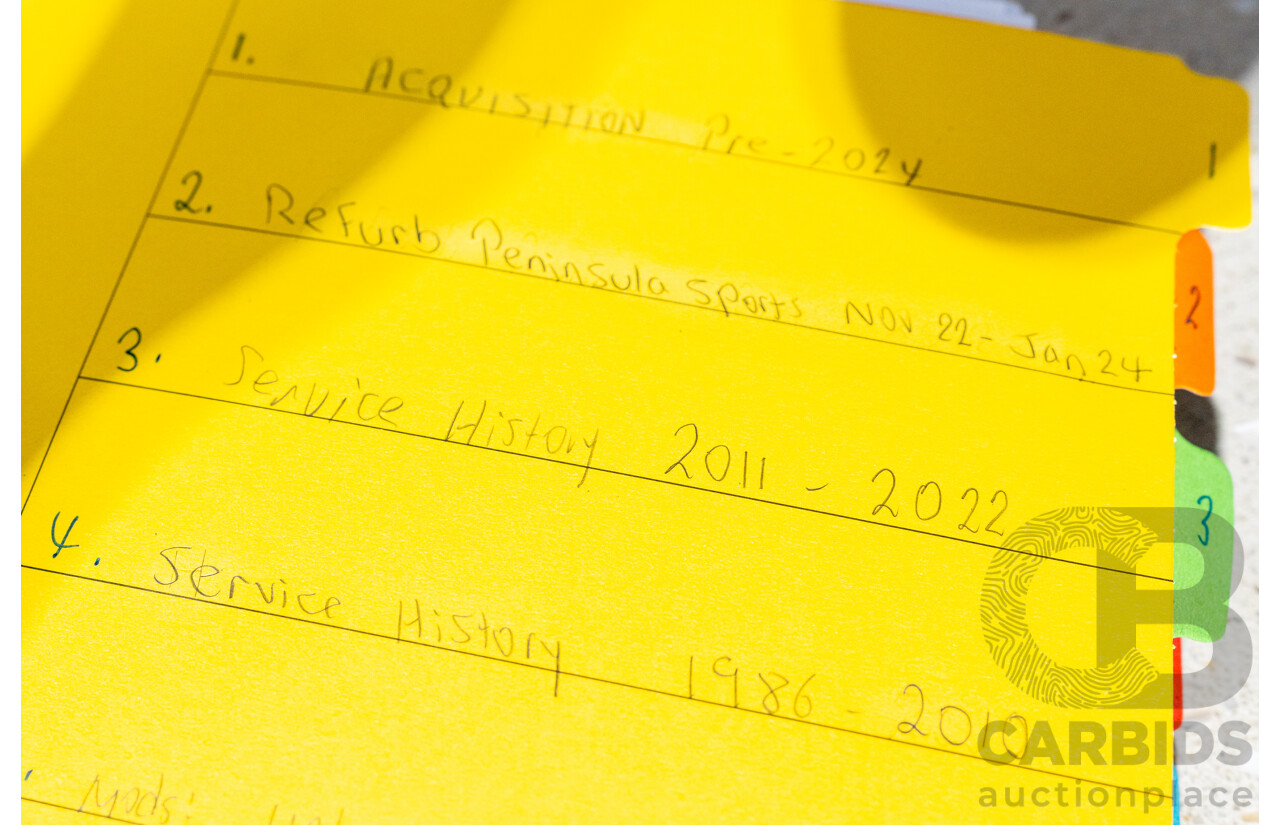 1. ACQUISITION Pre-2024
1
2. Refurb Peninsula Sports Nov 22 - Jan 24
2
3. Service History 2011 - 2022
3
4. Service History 1986 - 2010
Mods:
CB
CARBIDS
auctionplace